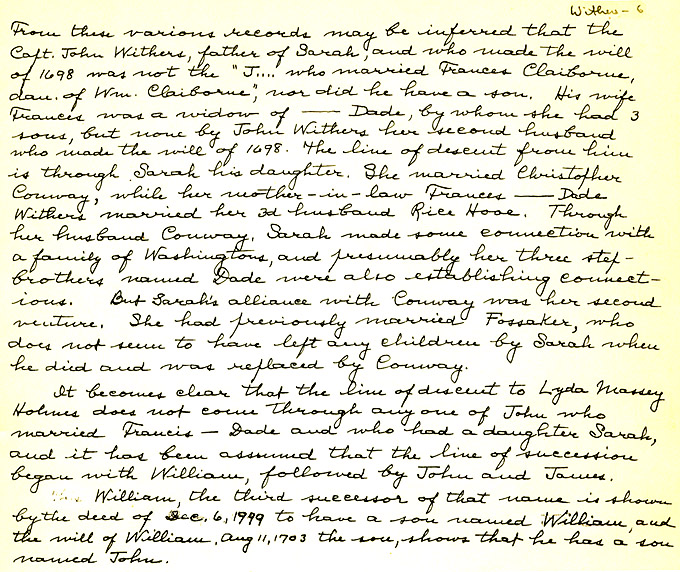 Withers - 6
From these various records may be inferred that the
Capt. John Withers, father of Sarah, and who made the will
of 1698 was not the "J.... who married Frances Claiborne,
dau. of Wm. Claiborne", nor did he have a son. His wife
Francis was a widow of — Dade, by whom she had 3
sons, but none by John Withers her second husband
who made the will of 1698. The line of descent from him
is through Sarah his daughter. She married Christopher
Conway, while her mother-in-law Frances — Dade
Withers married her 3d husband Rice Hooe. Through
her husband Conway, Sarah made some connection with
a family of Washingtons, and presumably her three step-
brothers named Dade were also establishing connect-
ions. But Sarah's alliance with Conway was her second
venture. She had previously married Fossaker, who
does not seem to have left any children by Sarah when
he died and was replaced by Conway.
It becomes clear that the line of descent to Lyda Massey
Holmes does not come through any one of John who
married Francis — Dade and who had a daughter Sarah,
and it has been assumed that the line of succession
began with William, followed by John and James.
William, the third successor of that name is shown
by the deed of Dec. 6, 1999 to have a son named William, and
the will of William, Aug 11, 1703 the son, shows that he has a son
named John.